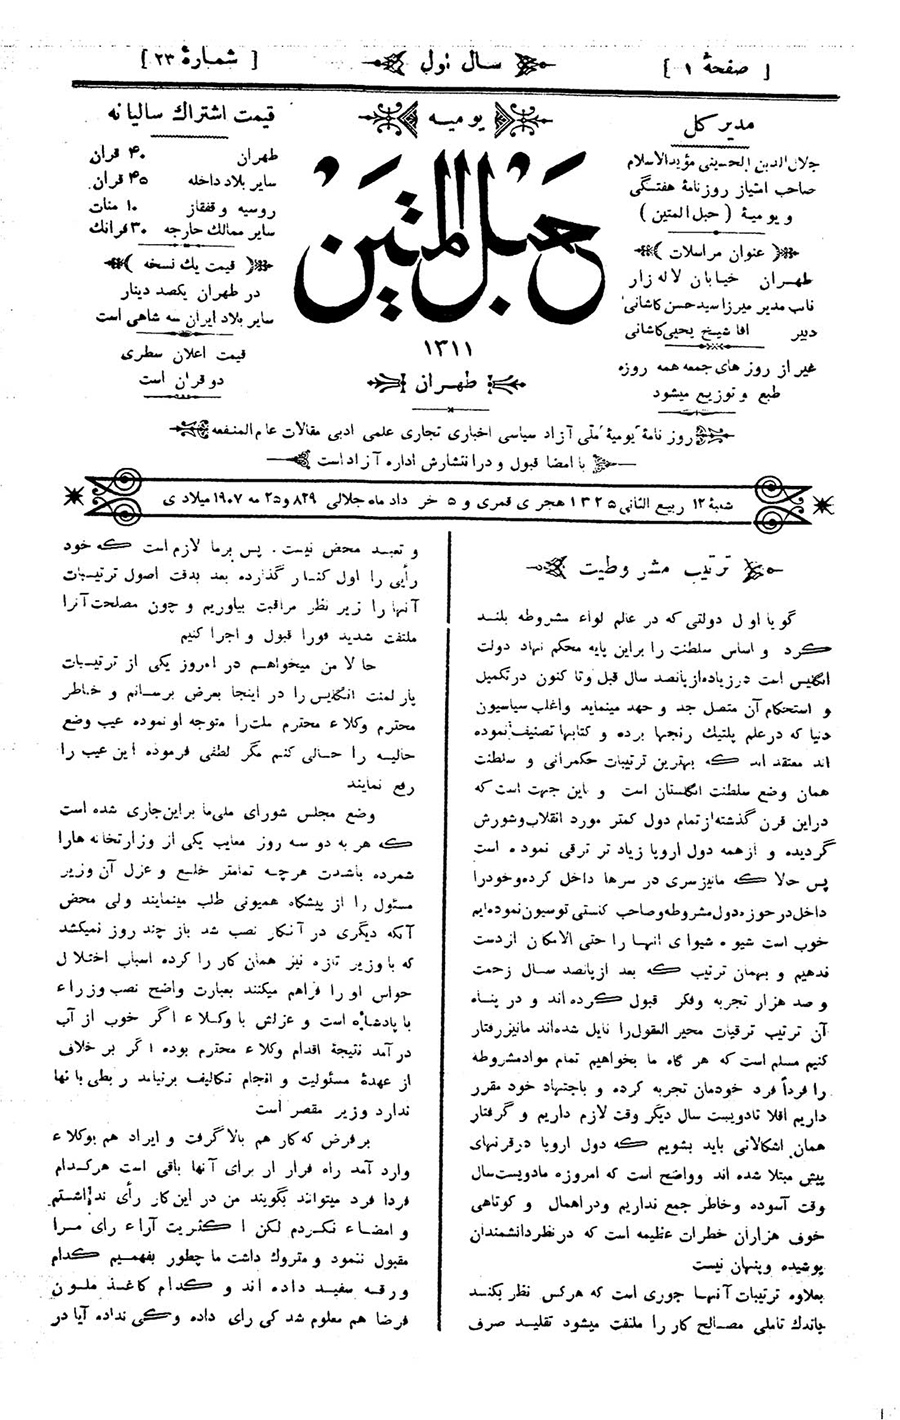 [ صفحهٔ ۱ ]
سال اول
[ شمارهٔ ۲۳ ]
مدیر کل
جلال الدین الحسینی مؤید الاسلام
صاحب امتیاز روزنامهٔ هفتگی
و یومیهٔ ( حبل المتین )
( عنوان مراسلات )
طهران خیابان لاله زار
نایب مدیر میرزا سید حسن کاشانی
دبیر اقا شیخ یحیی کاشانی
غیر از روز های جمعه همه روزه
طبع و توزیع میشود
یومیه
حبل المتین
۱۳۱۱
طهران
قیمت اشتراک سالیانه
طهران ۴۰ قران
سایر بلاد داخله ۴۵ قران
روسیه و قفقاز ۱۰ منات
سایر ممالک خارجه ۳۰ فرانک
( قیمت یک نسخه )
در طهران یکصد دینار
سایر بلاد ایران سه شاهی است
قیمت اعلان سطری
دو قران است
روزنامهٔ یومیهٔ ملی آزاد سیاسی اخباری تجاری علمی ادبی مقالات عام المنفعه
با امضا قبول و در انتشارش اداره آزاد است
شنبهٔ ۱۲ ربیع الثانی ۱۳۲۵ هجری قمری و ۵ خرداد ماه جلالی ۸۲۹ و ۲۵ مه ۱۹۰۷ میلادی
ترتیب مشروطیت
گویا اول دولتی که در عالم لواء مشروطه بلند
کرد و اساس سلطنت را براین پایه محکم نهاد دولت
انگلیس است در زیاده از پانصد سال قبل و تا کنون در تکمیل
و استحکام آن متصل جد و جهد مینماید و اغلب سیاسیون
دنیا که در علم پلتیک رنجها برده و کتابها تصنیف نموده
اند معتقد اند که بهترین ترتیبات حکمرانی و سلطنت
همان وضع سلطنت انگلستان است و باین جهت است که
دراین قرن گذشته از تمام دول کمتر مورد انقلاب و شورش
گردیده و از همه دول اروپا زیاد تر ترقی نموده است
پس حالا که مانیز سری در سرها داخل کرده و خود را
داخل در حوزه دول مشروطه و صاحب کنستی توسیون نموده ایم
خوب است شیوه شیوای انها را حتی الامکان از دست
ندهیم و بهمان ترتیب که بعد از پانصد سال زحمت
و صد هزار تجربه و فکر قبول کرده اند و در پناه
آن ترتیب ترقیات محیر العقول را نایل شده اند مانیز رفتار
کنیم مسلم است که هر گاه ما بخواهیم تمام مواد مشروطه
را فرداً فرد خودمان تجربه کرده و باجتهاد خود مقرر
داریم اقلا تا دویست سال دیگر وقت لازم داریم و گرفتار
همان اشکالاتی باید بشویم که دول اروپا در قرنهای
پیش مبتلا شده اند و واضح است که امروزه ما دویست سال
وقت آسوده و خاطر جمع نداریم و در اهمال و کوتاهی
خوف هزاران خطرات عظیمه است که در نظر دانشمندان
پوشیده و پنهان نیست
بعلاوه ترتیبات آنها جوری است که هر کس نظر بکند
باندک تاملی مصالح کار را ملتفت میشود تقلید صرف
و تعبد محض نیست . پس برما لازم است که خود
رأیی را اول کنار گذارده بعد بدقت اصول ترتیبات
آنها را زیر نظر مراقبت بیاوریم و چون مصلحت آنرا
ملتفت شدید فورا قبول و اجرا کنیم
حالا من میخواهم در امروز یکی از ترتیبات
پارلمنت انگلیس را در اینجا بعرض برسانم و خاطر
محترم وکلاء محترم ملت را متوجه او نموده عیب وضع
حالیه را حالی کنم مگر لطفی فرموده این عیب را
رفع نمایند
وضع مجلس شورای ملی ما براین جاری شده است
که هر به دو سه روز معایب یکی از وزارتخانه هارا
شمرده باشدت هرچه تمامتر خلع و عزل آن وزیر
مسئول را از پیشگاه همیونی طلب مینمایند ولی محض
آنکه دیگری در آنکار نصب شد باز چند روز نمیکشد
که با وزیر تازه نیز همان کار را کرده اسباب اختلال
حواس او را فراهم میکنند بعبارت واضح نصب وزراء
با پادشاه است و عزلش با وکلاء اگر خوب از آب
درآمد نتیجهٔ اقدام وکلاء محترم بوده اگر بر خلاف
از عهدهٔ مسئولیت و انجام تکالیف برنیامد ربطی با نها
ندارد وزیر مقصر است
برفرض که کار هم بالا گرفت و ایراد هم بوکلاء
وارد آمد راه فرار از برای آنها باقی است هرکدام
فردا فرد میتواند بگویند من در این کار رأی نداشتم
و امضاء نکردم لکن اکثریت آراء رای مرا
مقبول ننمود و متروک داشت ما چطور بفهمیم کدام
ورقه سفید داده اند و کدام کاغذ ملون
فرضا هم معلوم شد کی رای داده و کی نداده آیا در